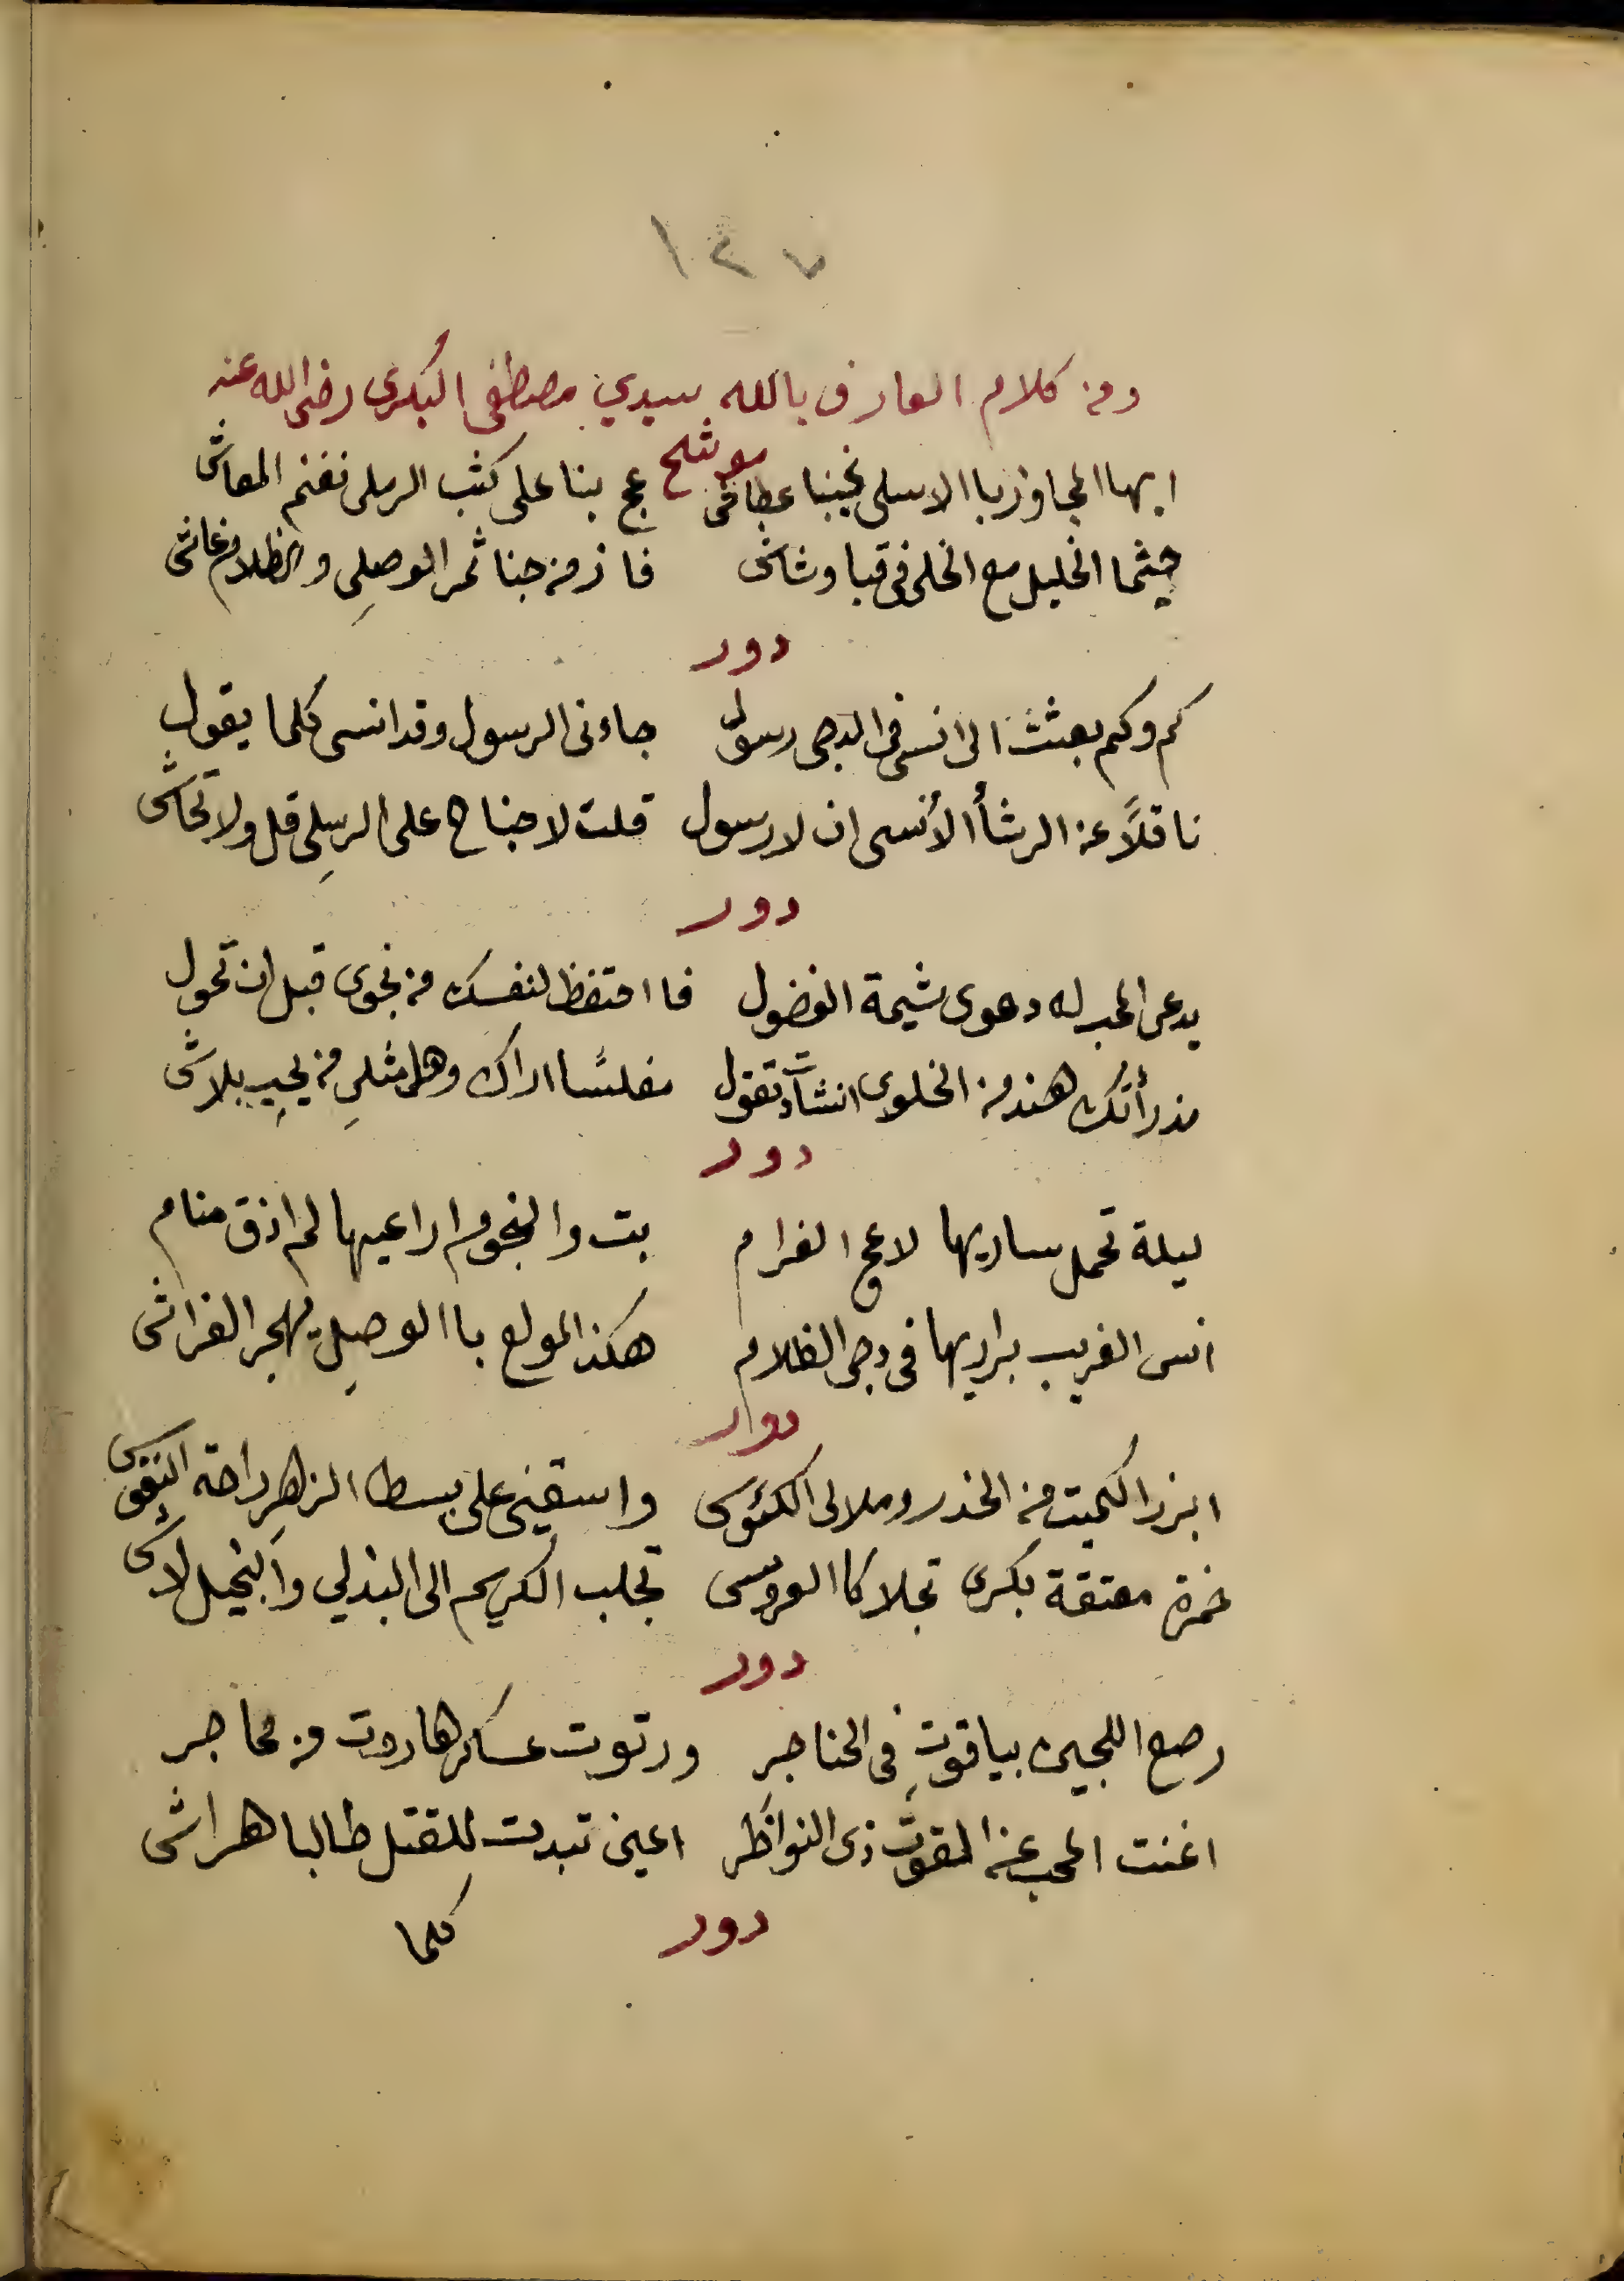 ١٤٧
ومن كلام العارف بالله سيدي مصطفى البكرى رضى الله عنه
موشح
ايها المجاوز با الاسلى نجبنا عطاش عج بنا على كثب الرملى نغنم المعاش
حيثما الخليل مع الخلى فى قبا وشاش فاز من جنا ثمر الوصلِى والظلام غاش
دور
كم وكم بعثت الى انسى فى الدجى رسول جاءنى الرسول وقد انسى كلما يقول
ناقلاً عن الرشأ الأنسى ان لا رسول قلت لا جناح على الرسلِى قل ولا تحاش
دور
يدعى المحب له دعوى شيمة الفضول فا احتفظ لنفسك من نجوى قبل ان تحول
مذ رأتك هند من الخلوى انشأت تقول مفلسًا اراك وهل مثلىِ من يجيِب بلاش
دور
ليلة تحمل ساريها لاعج الغرام بت والنجوم اراعيها لم اذق منام
انس الغريب براريها فى دجى الظلام هكذ المولع با الوصلِ يهجر الفراش
دور
ابرز الكميت من الخدر وملالى الكئوس واسقنى على بسط الزهرِ راحة النفوس
خمرة معتقة بكرى تجلا كا العروس تجلب الكريم الى البذلي والبخيل لاش
دور
رصع اللجين بياقوتِ فى الحناجر ورتوت عسكر هاروت من محاجر
اغنت المحب عن القوتِ ذى النواظر اعين تبدت للقتل طالبا هراش
دور
كلما